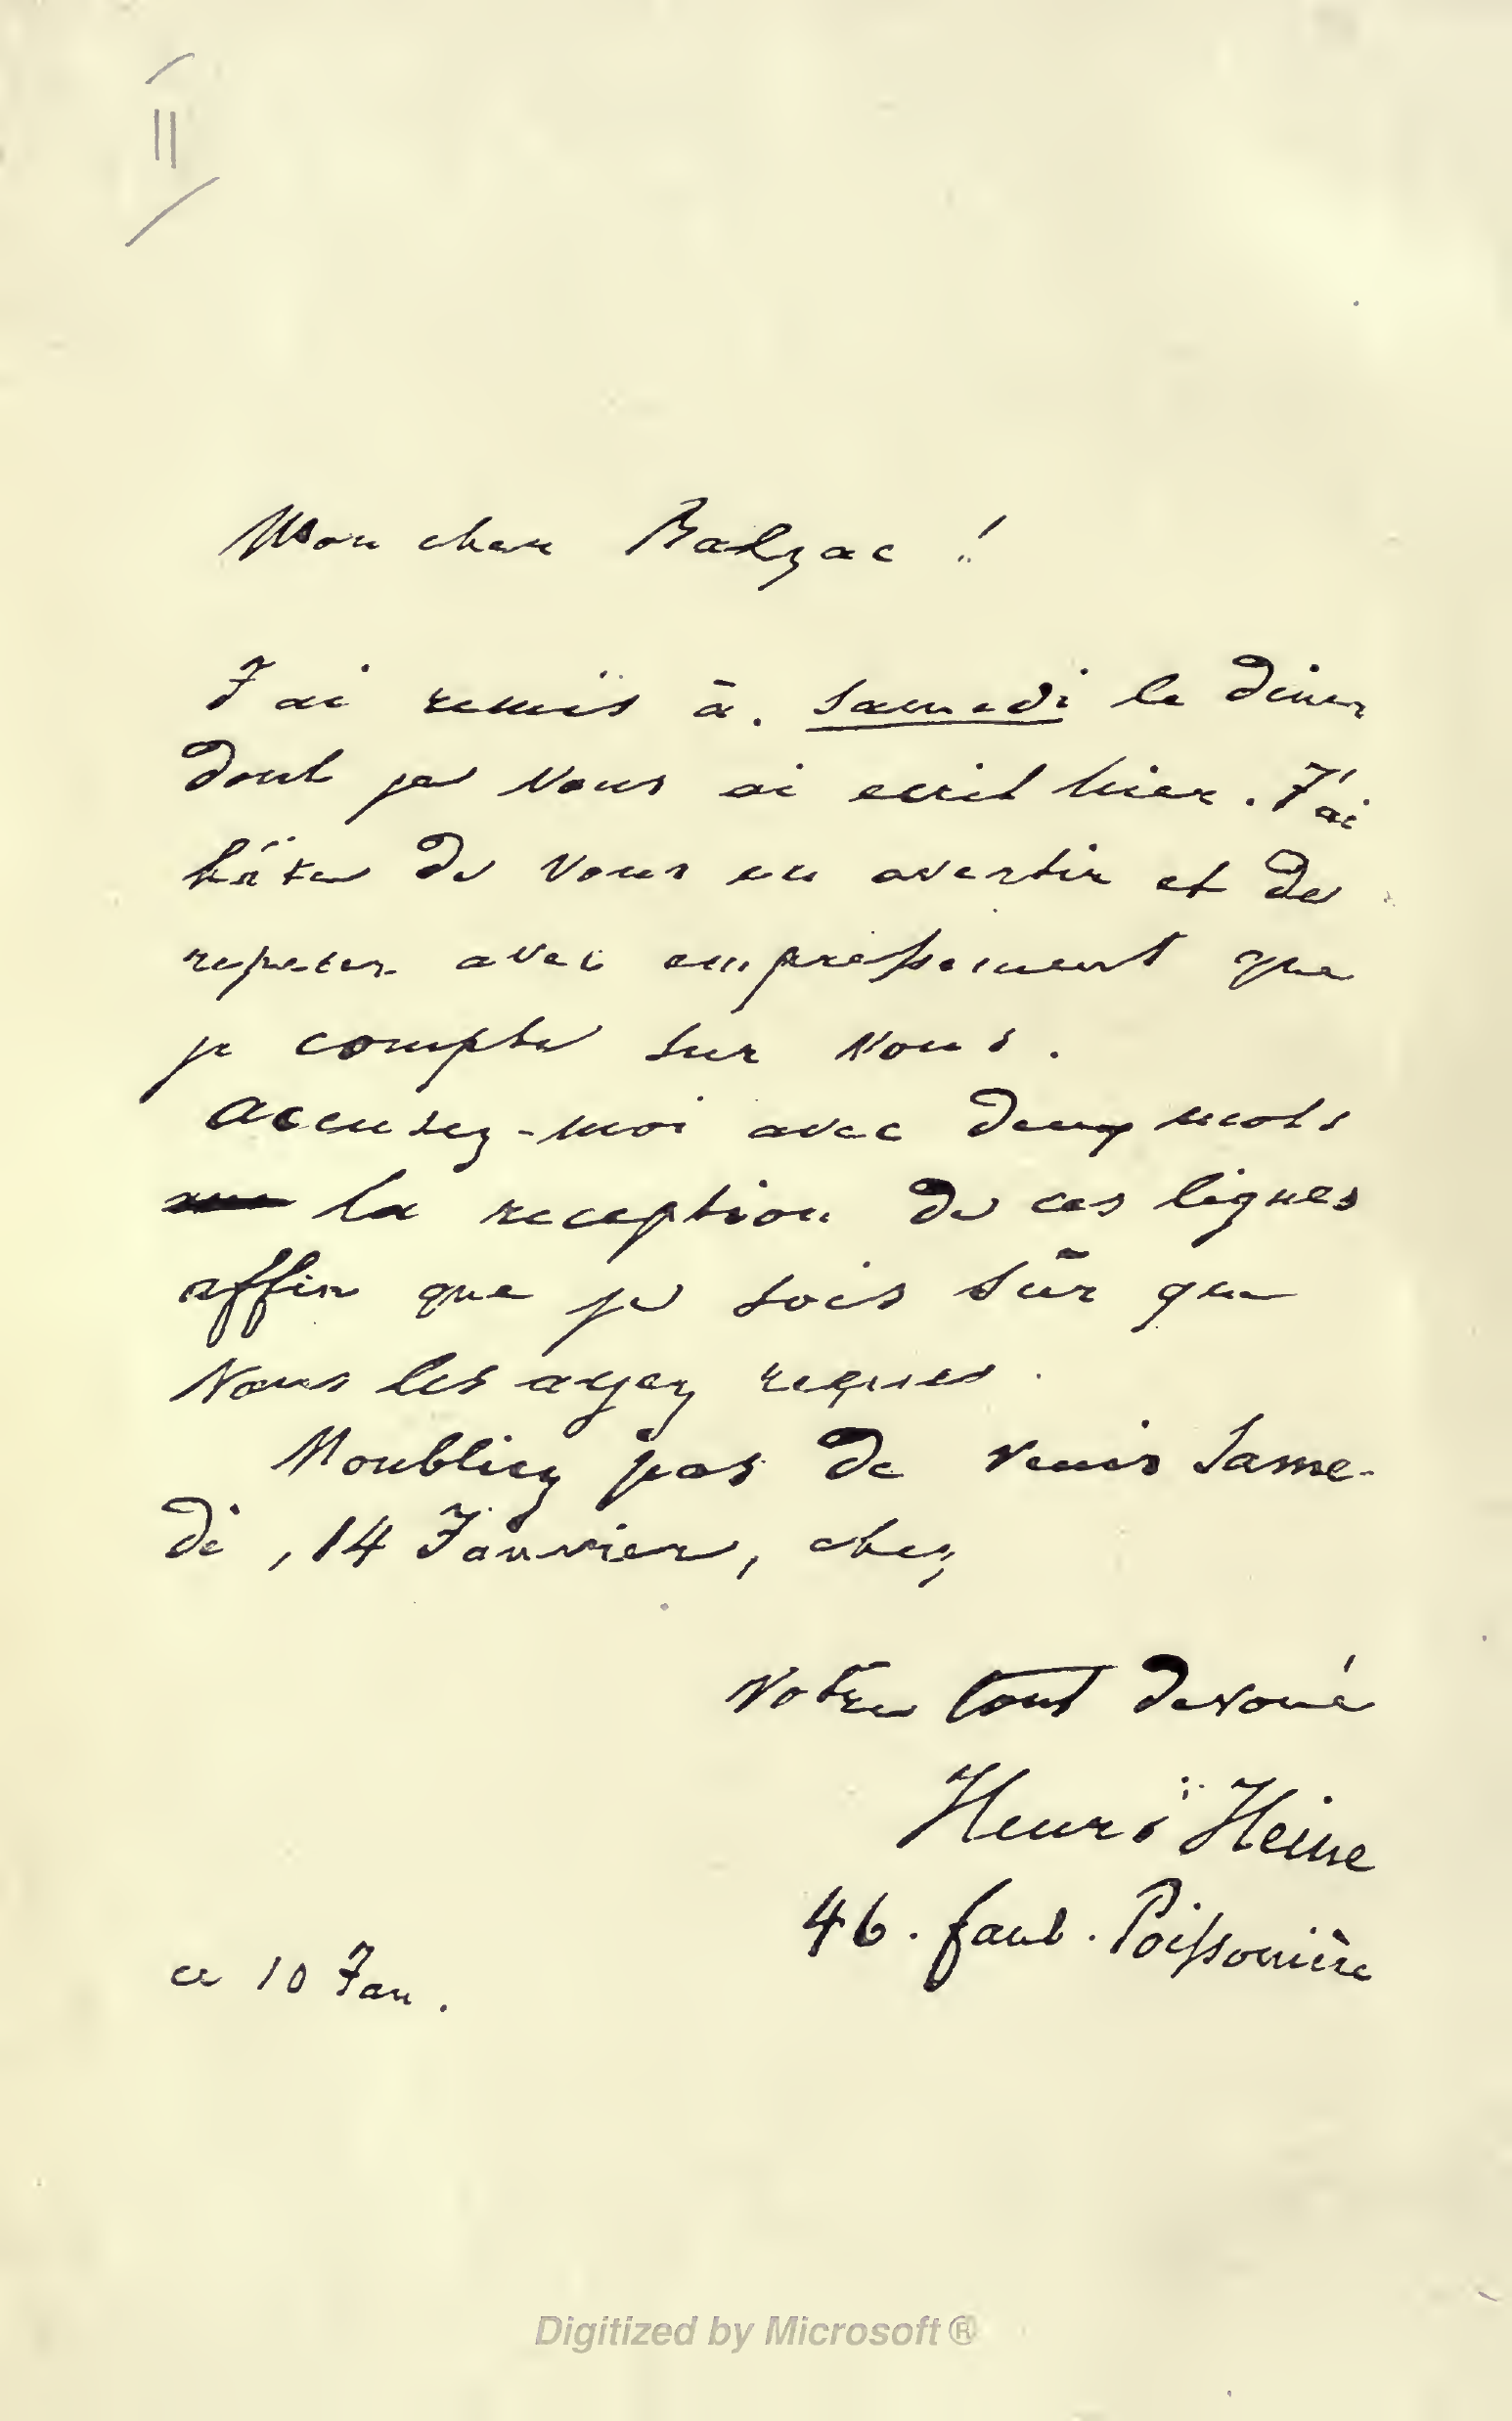 II
Mon cher Balzac !
J'ai remis à samedi le diner
dont je vous ai ecrit hier. J'ai
hâte de vous en avertir et de
repeter avec empressement que
je compte sur vous.
Accusez-moi avec deux mots
la reception de ces lignes
affin que je sois sûr que
vous les ayez reçues.
Noubliez pas de venir same-
di, 14 Janvier, chez
votre tout devoué
Henri Heine
46. faub. Poissonière
ce 10 Jan.
Digitized by Microsoft ®